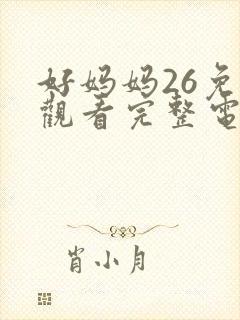 好妈妈26免
觀看完整電
肖小月